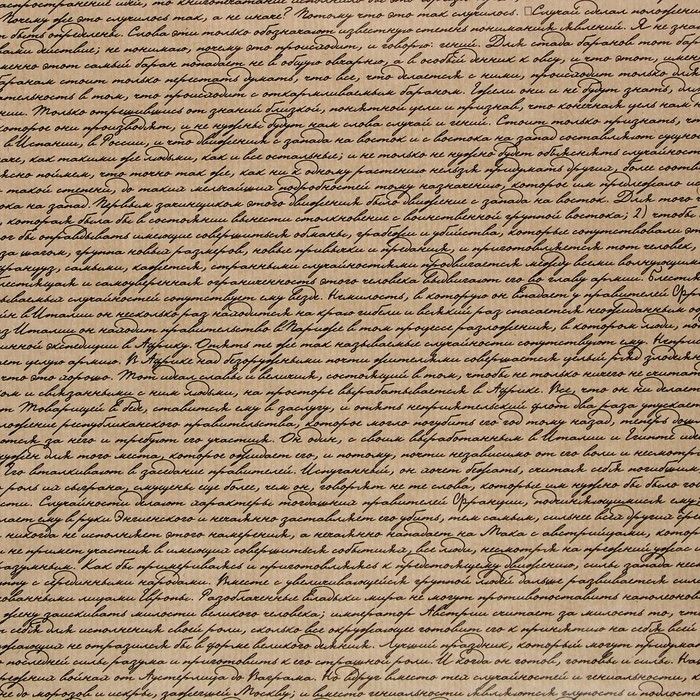 распространение идей, то книгопечатание
Почему же это случилось так, а не иначе? Потому что это так случилось. Случай сделал положение
т быть определены. Слова эти только обозначают известную степень понимания явлений. Я не зна
ками действие; не понимаю, почему это происходит, и говорю: гений. Для стада баранов тот бар
менно этот самый баран попадает не в общую овчарню, а в особый денник к овсу, и что этот, имен
баранам стоит только перестать думать, что все, что делается с ними, происходит только для
ательность в том, что происходит с откармливаемым бараном. Ежели они и не будут знать, для
нии. Только отрешившись от знаний близкой, понятной цели и признав, что конечная цель нам
которое они производят, и не нужны будут нам слова случай и гений. Стоит только признать, чт
в Испании, в России, и что движения с запада на восток и с востока на запад составляют сущн
аче, как такими же людьми, как и все остальные; и не только не нужно будет объяснять случайност
ясно поймем, что точно так же, как ни к одному растению нельзя придумать других, более соотв
такой степени, до таких мельчайших подробностей тому назначению, которое им предлежало и
ока на запад. Первым зачинщиком этого движения было движение с запада на восток. Для того ч
, которая была бы в состоянии вынести столкновение с воинственной группой востока; 2) чтобы
ог бы оправдывать имеющие совершиться обманы, грабежи и убийства, которые сопутствовали эт
за шагом, группа новых размеров, новые привычки и предания, и приготовляется тот человек,
француз, самыми, кажется, странными случайностями продвигается между всеми волнующими
лестящая и самоуверенная ограниченность этого человека выдвигают его во главу армии. Блестя
ываемых случайностей сопутствует ему везде. Немилость, в которую он впадает у правителей Фран
йн в Италии он несколько раз находится на краю гибели и всякий раз спасается неожиданным об
из Италии он находит правительство в Париже в том процессе разложения, в котором люди, по
нной экспедиции в Африку. Опять те же так называемые случайности сопутствуют ему. Неприс
ает целую армию. В Африке над безоружными почти жителями совершается целый ряд злодеяни
что это хорошо. Тот идеал славы и величия, состоящий в том, чтобы не только ничего не считат
ком и связанными с ним людьми, на просторе вырабатывается в Африке. Все, что он ни делает
от. Товарищей в беде, ставится ему в заслугу, и опять неприятельский флот два раза упускает
ложение республиканского правительства, которое могло погубить его год тому назад, теперь дош
отся за него и требуют его участия. Он один, с своим выработанным в Италии и Египте ид
нужен для того места, которое ожидает его, и потому, почти независимо от его воли и несмотря
Его вталкивают в заседание правителей. Испуганный, он хочет бежать, считая себя погибшим
роль их сыграна, смущены еще более, чем он, говорят не те слова, которые им нужно бы было го
сти. Случайности делают характеры тогдашних правителей Франции, подчиняющимися ему
лает ему в руки Энгиенского и нечаянно заставляет его убить, тем самым, сильнее всех других сре
никогда не исполняет этого намерения, а нечаянно нападает на Мака с австрийцами, котор
и не примет участия в имеющих совершиться событиях, все люди, несмотря на прежний ужас
разумным. Как бы примериваясь и приготовляясь к предстоящему движению, силы запада неск
уппу с серединными народами. Вместе с увеличивающейся группой людей дальше развивается сила
нованными лицами Европы. Разоблаченные владыки мира не могут противопоставить наполеонов
жену заискивать милости великого человека; император Австрии считает за милость то, чт
себя для исполнения своей роли, сколько все окружающее готовит его к принятию на себя всей
ружающих не отразился бы в форме великого деяния. Лучший праздник, который могут придумат
последней силы разума и приготовить к его страшной роли. И когда он готов, готовы и силы. На
поражения войны от Аустерлица до Ваграма. Но вдруг вместо тех случайностей и гениальности,
до морозов и искры, зажегшей Москву; и вместо гениальности являются глупость и подлос